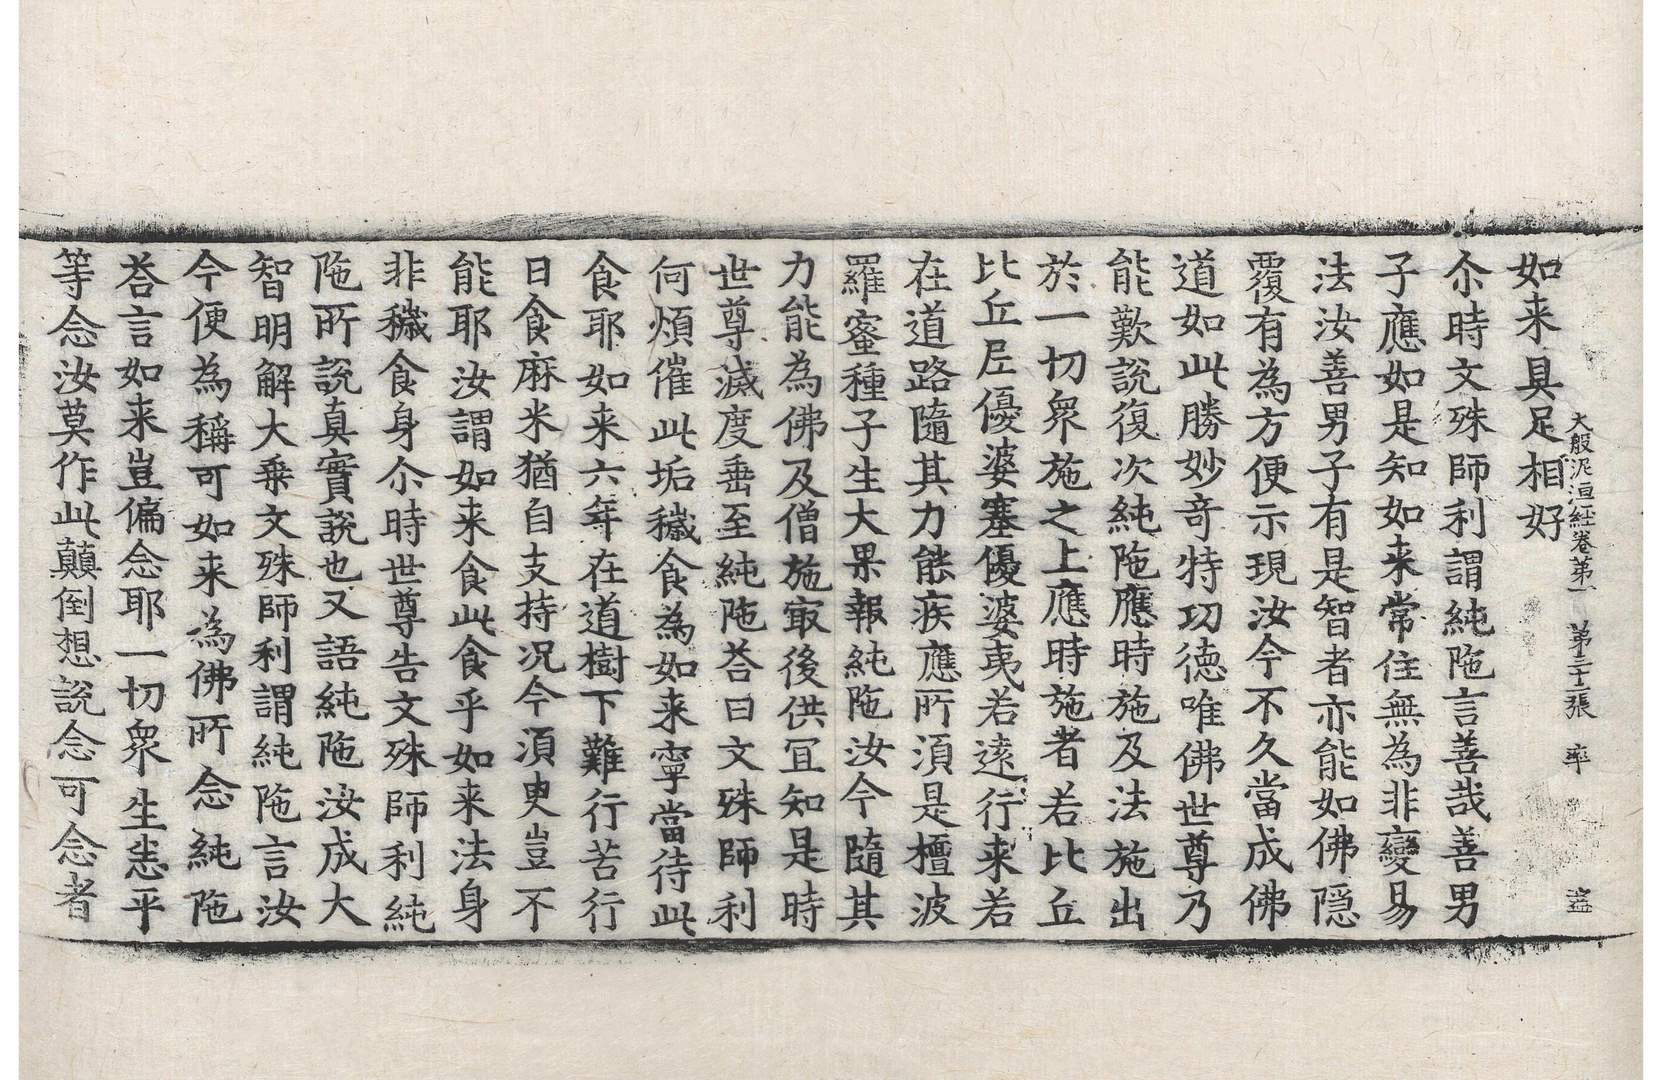 大般泥洹経卷第一 第二十二張 率
如来具足相好
尒時文殊師利謂純陁言善哉善男
子應如是知如来常住無為非變易
法汝善男子有是智者亦能如佛隠
覆有為方便示現汝今不久當成佛
道如此勝妙竒特功德唯佛世尊乃
能歎說復次純陁應時施及法施出
於一切衆施之上應時施者若比丘
比丘尼優婆塞優婆夷若遠行来若
在道路隨其力能疾應所湏是檀波
羅蜜種子生大果報純陁汝今隨其
力能為佛及僧施㝡後供冝知是時
世尊滅度垂至純陁荅曰文殊師利
何煩催此垢穢食為如来寧當待此
食耶如来六年在道樹下難行苦行
日食麻米猶自支持况今湏臾豈不
能耶汝謂如来食此食乎如来法身
非穢食身尒時世尊告文殊師利純
陁所說真實說也又語純陁汝成大
智明解大乗文殊師利謂純陁言汝
今便為稱可如来為佛所念純陁
荅言如来豈偏念耶一切衆生悉平
等念汝莫作此顛倒想說念可念者